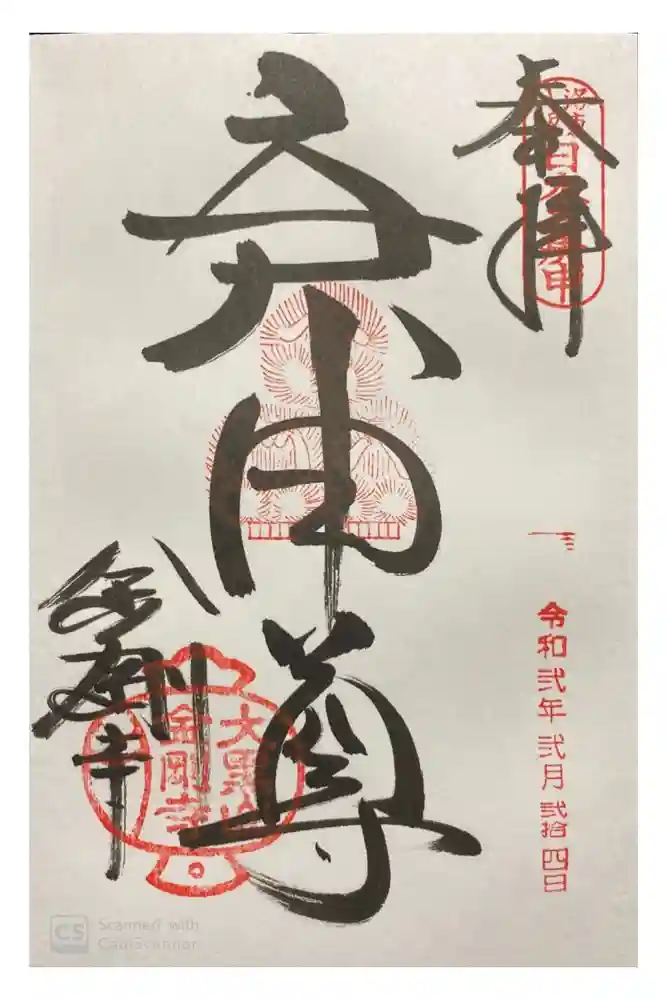 奉拝
庚申尊
令和弐年弐月弐拾四日
金剛寺
大黒山
金剛寺
CS Scanned with
CamScanner